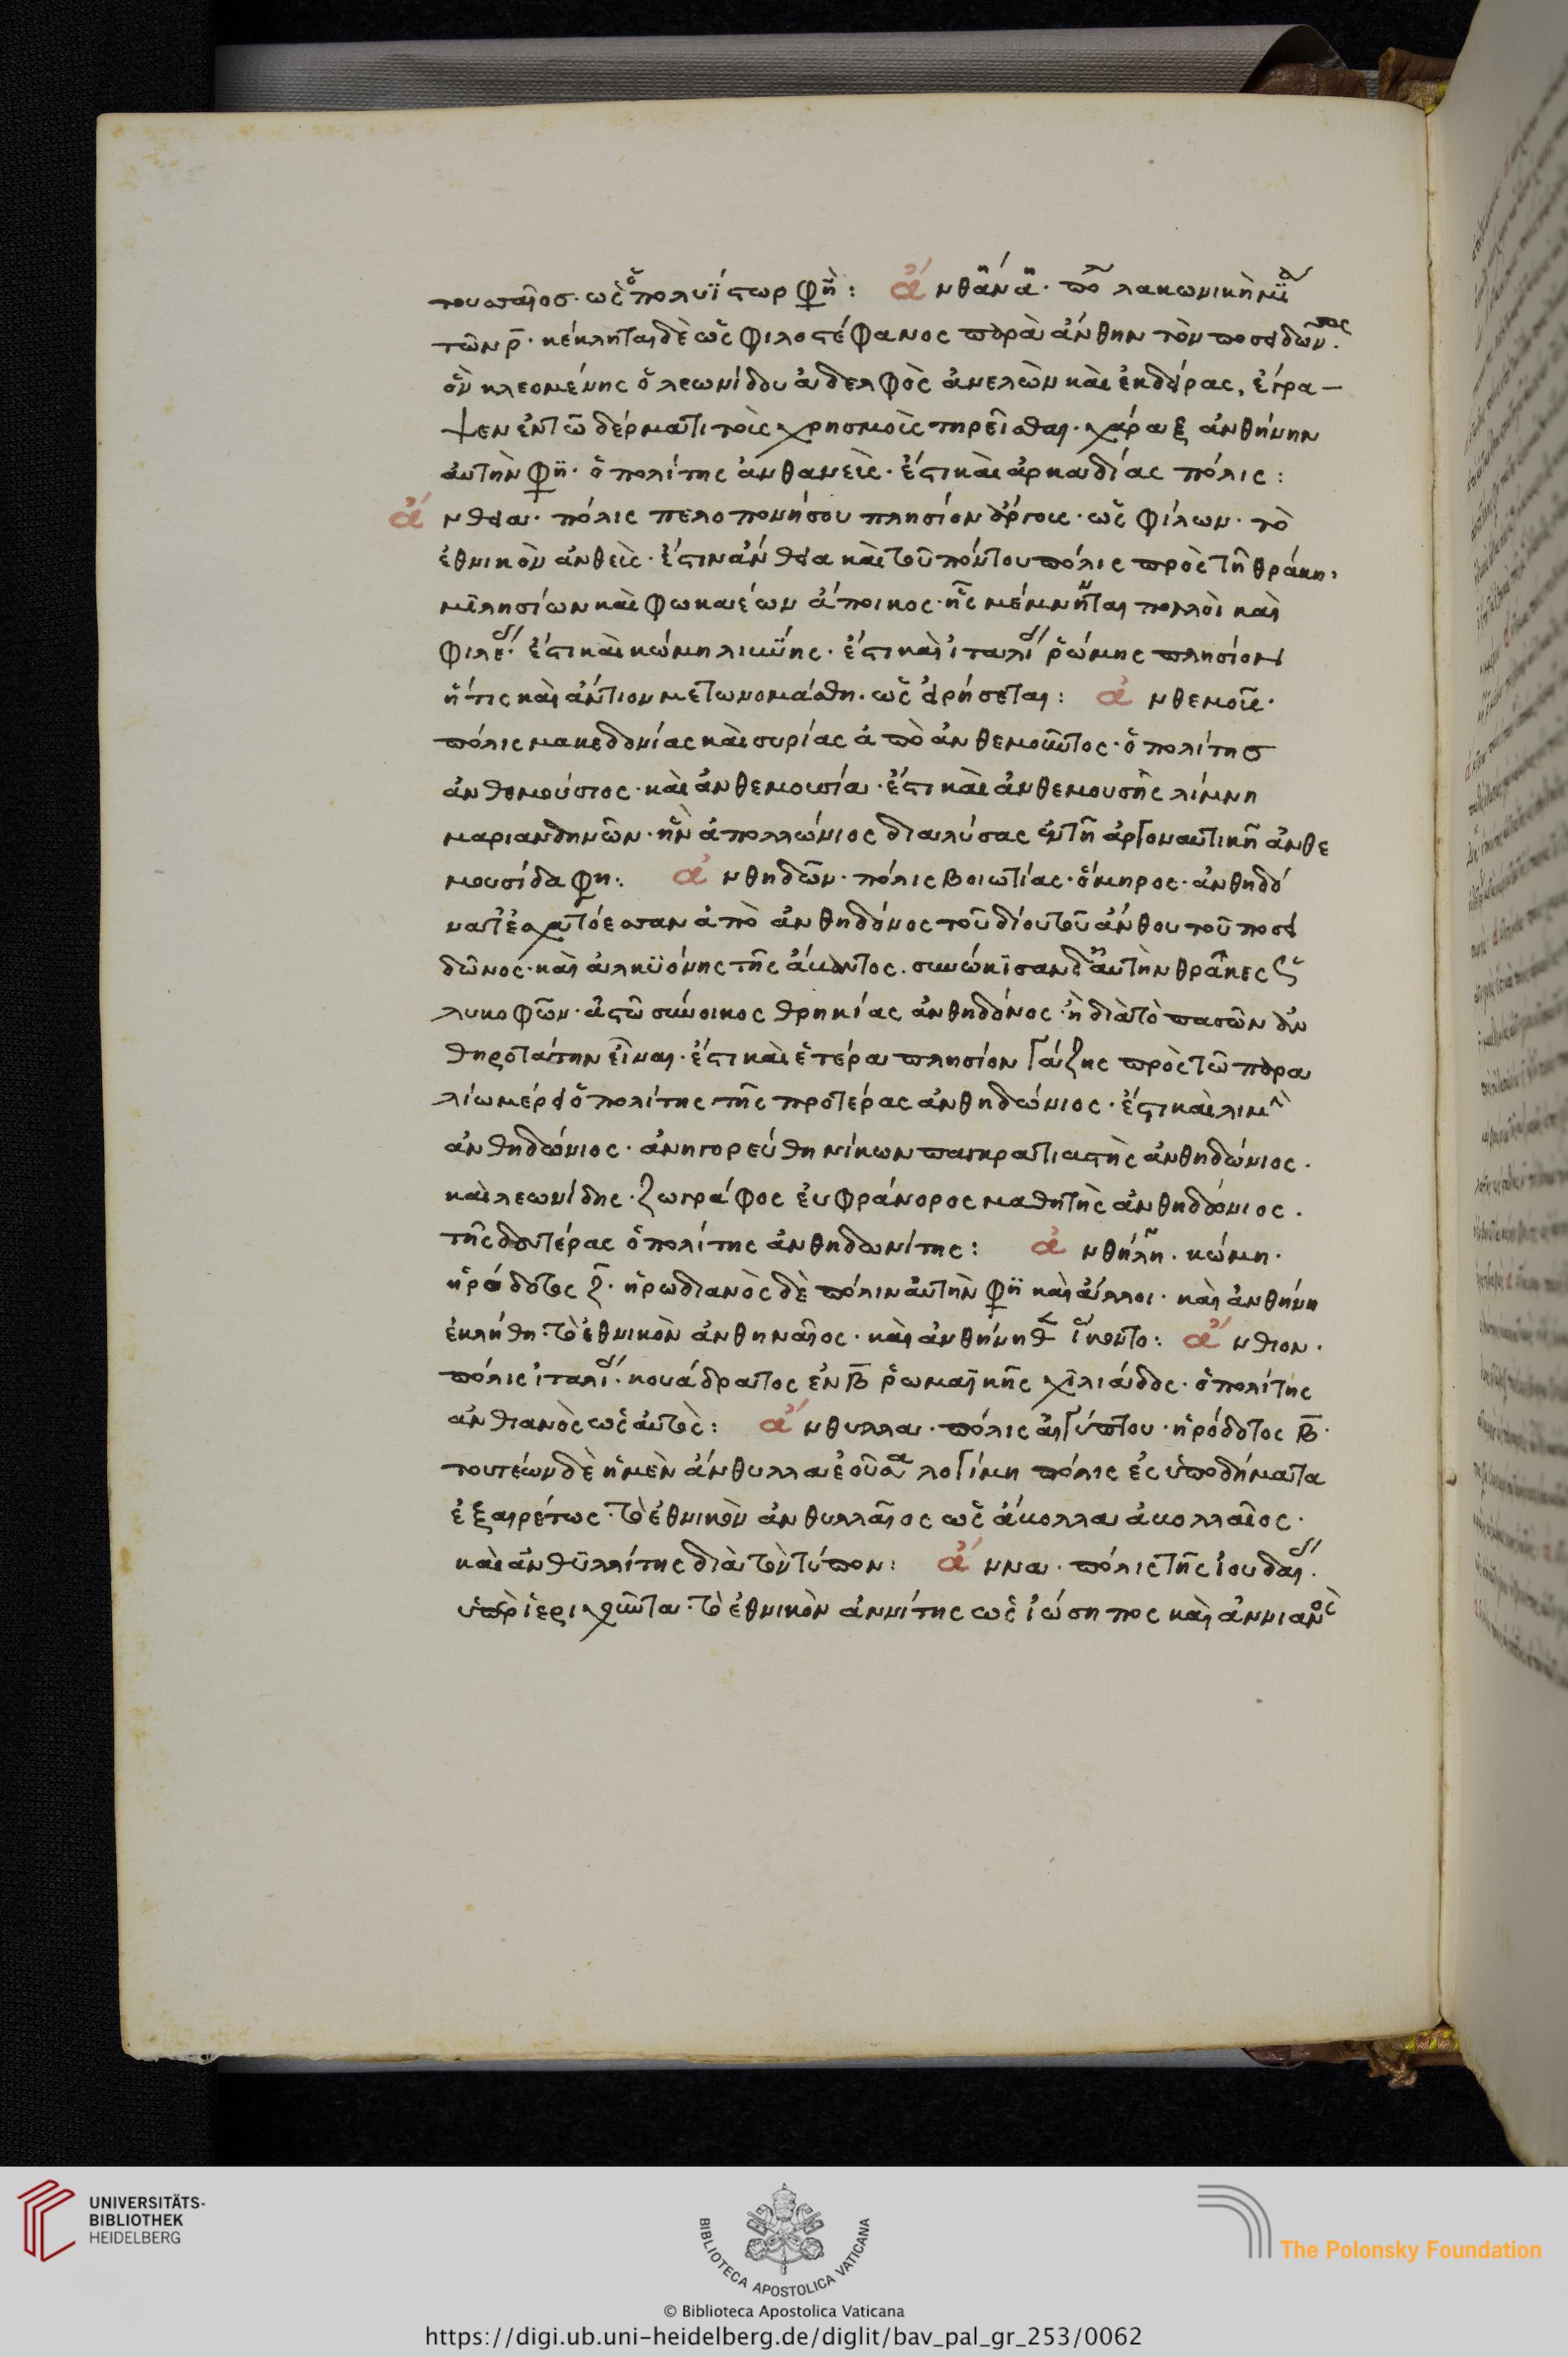 τουσταῖοσ· ὡς ὁ πολυΐστωρ φη: ἀ νθάνα· πό λακωνικὴ μία
τῶν ρ̄· κέκληται δὲ ὡς φιλοστέφανος παρὰ ἄνθην τὸν ποσειδῶνος.
ὃν κλεομένης ὁ λεωνίδου ἀδελφὸς ἀνελὼν καὶ ἐκδείρας, ἔγρα–
ψεν ἐν τῶ δέρματι τοὺς χρησμοὺς τηρεῖσθαι· χάραξ ἀνθήνην
αὐτὴν φη· ὁ πολίτης ἀνθανεύς· ἔστι καὶ ἀρκαδίας πόλις:
ἄ νθεια· πόλις πελοπονήσου πλησίον ἄργους· ὡς φίλων· τὸ
ἐθνικὸν ἀνθεὺς· ἔστιν ἄνθεια καὶ τοῦ πόντου πόλις πρὸς τῆ θράκη,
μιλησίων καὶ φωκαιέων ἄποικος· ἧς μέμνηται πολλοὶ καὶ
φιλέ· ἔστι καὶ κώμη λιμύης· ἔστι καὶ ἰταλί ῥώμης πλησίον
ἥτις καὶ ἄντιον μετωνομάσθη· ὡς εἰρήσεται: ἀ νθεμοῦς·
πόλις μακεδονίας καὶ συρίας ἀπὸ ἀνθεμοῦντος· ὁ πολίτησ
ἀνθεμούσιος· καὶ ἀνθεμουσία· ἔστι καὶ ἀνθεμουσὴς λίμνη
μαριανδηνῶν· ἣν ἀπολλώνιος διαλύσας ἐν τῆ ἀργοναυτικῆ ἀνθε
μουσίδα φη: ἀ νθηδῶν· πόλις βοιωτίας· ὅμηρος· ἀνθηδό
να τ' ἐσχατόεσσαν ἀπὸ ἀνθηδόνος τοῦ δίου τοῦ ἄνθου τοῦ ποσει
δῶνος· καὶ ἀλκυόνης τῆς ἄκοντος. συνώκισαν δ' αὐτὴν θρᾶκες ὡς
λυκοφῶν· ἀστῶ σύνοικος θρηκίας ἀνθηδόνος· ἢ διὰ τὸ πασῶν ἀν
θηροτάτην εἶναι· ἔστι καὶ ἑτέρα πλησίον γάζης πρὸς τῶ παρα
λίω μέρει ὁ πολίτης τῆς προτέρας ἀνθηδώνιος· ἔστι καὶ λιμὴν
ἀνθηδώνιος· ἀνηγορεύθη νίκων παγκρατιαστὴς ἀνθηδώνιος.
καὶ λεωνίδης· ζωγράφος εὐφράνορος μαθητὴς ἀνθηδόνιος.
τῆς δευτέρας ὁ πολίτης ἀνθηδωνίτης: ἀ νθήλη. κώμη.
ἡρόδοτος ζ̄. ἡρωδιανὸς δὲ πόλιν αὐτὴν φη καὶ ἄλλοι· καὶ ἀνθήνη
ἐκλήθη· τὸ ἐθνικὸν ἀνθηναῖος· καὶ ἀνθήνηθεν γένοιτο: ἄ νθιον.
πόλις ἰταλί· κουάδρατος ἐν β̄ ῥωμαϊκῆς χιλιάδος· ὁ πολίτης
ἀνθιανὸς ὡς αὐτὸς: ἄ νθυλλα· πόλις αἰγύπτου· ἡρόδοτος β̄·
τουτέων δὲ ἡ μὲν ἄνθυλλα ἐοῦσα λογίμη πόλις ἐς ὑποδήματα
ἐξαιρέτως· τὸ ἐθνικὸν ἀνθυλλαῖος ὡς ἄκολλα ἀκολλαῖος·
καὶ ἀνθυλλίτης διὰ τὸν τύπον: ἄ ννα· πόλις τῆς ἰουδαί.
ὑπὲρ ἱεριχοῦντα· τὸ ἐθνικὸν ἀννίτης ὡς ἰώσηπος καὶ ἀννιανὸς
UNIVERSITÄTS-
BIBLIOTHEK
HEIDELBERG
BIBLIOTECA APOSTOLICA VATICANA
The Polonsky Foundation
© Biblioteca Apostolica Vaticana
https://digi.ub.uni-heidelberg.de/diglit/bav_pal_gr_253/0062